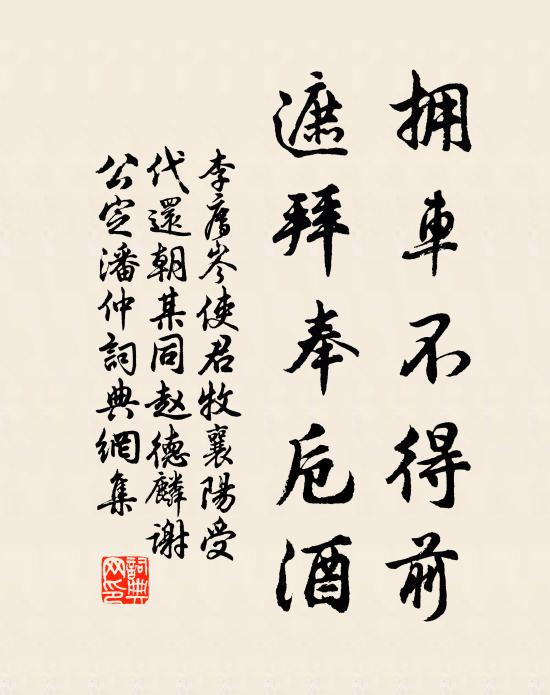 拥車不得前
遮拜奉卮酒
李廌岑使君牧襄陽受
代還朝某同赵德麟謝
公定潘仲詞典網集
詞典网印